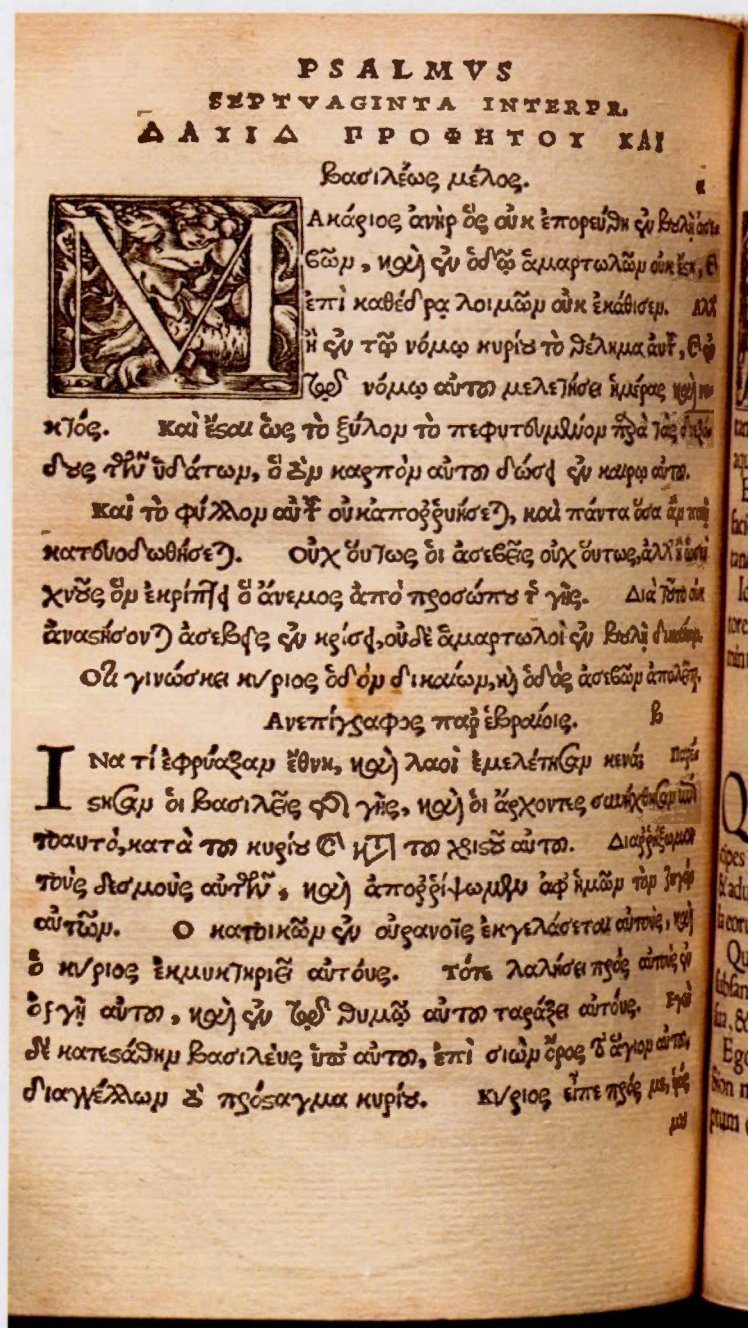 PSALMVS
SEPTVAGINTA INTERPR.
ΔΑΥΙΔ ΠΡΟΦΗΤΟΥ ΚΑΙ
βασιλέως μέλος.
α
ΜΑκάριος ἀνὴρ ὃς οὐκ ἐπορεύθη ἐν βουλῇ ἀσε
βῶν, καὶ ἐν ὁδῷ ἁμαρτωλῶν οὐκ ἔστη, καὶ
ἐπὶ καθέδρα λοιμῶν οὐκ ἐκάθισεν. Αλλ
ἢ ἐν τῷ νόμῳ κυρίου τὸ θέλημα αὐτοῦ, καὶ ἐν
τῷ νόμῳ αὐτοῦ μελετήσει ἡμέρας καὶ νυ
κτός. Καὶ ἔσαι ὡς τὸ ξύλον τὸ πεφυτευμένον παρὰ τὰς διεξό
δους τῶν ὑδάτων, ὃ τὸν καρπὸν αὐτοῦ δώσει ἐν καιρῷ αὐτοῦ.
Καὶ τὸ φύλλον αὐτοῦ οὐκ ἀποῤῥυήσεται, καὶ πάντα ὅσα ἂν ποιῇ
κατευοδωθήσεται. Οὐχ οὕτως οἱ ἀσεβεῖς οὐχ οὕτως, ἀλλ' ἢ ὡσεὶ
χνοῦς ὃν ἐκρίπτει ὁ ἄνεμος ἀπὸ προσώπου τῆς γῆς. Διὰ τοῦτο οὐκ
ἀναστήσονται ἀσεβεῖς ἐν κρίσει, οὐδὲ ἁμαρτωλοὶ ἐν βουλῇ δικαίων.
Οτι γινώσκει κύριος ὁδὸν δικαίων, καὶ ὁδὸς ἀσεβῶν ἀπολεῖται.
Ανεπίγραφος παρ' ἑβραίοις. β
ΙΝα τί ἐφρύαξαν ἔθνη, καὶ λαοὶ ἐμελέτησαν κενά; Παρέ
στησαν οἱ βασιλεῖς τῆς γῆς, καὶ οἱ ἄρχοντες συνήχθησαν ἐπὶ
τοαυτό, κατὰ τοῦ κυρίου καὶ κατὰ τοῦ χριστοῦ αὐτοῦ. Διαῤῥήξωμεν
τοὺς δεσμοὺς αὐτῶν, καὶ ἀποῤῥίψωμεν ἀφ' ἡμῶν τὸν ζυγὸν
αὐτῶν. Ο κατοικῶν ἐν οὐρανοῖς ἐκγελάσεται αὐτούς, καὶ
ὁ κύριος ἐκμυκτηριεῖ αὐτούς. Τότε λαλήσει πρὸς αὐτοὺς ἐν
ὀργῇ αὐτοῦ, καὶ ἐν τῷ θυμῷ αὐτοῦ ταράξει αὐτούς. Εγὼ
δὲ κατεστάθην βασιλεὺς ὑπ' αὐτοῦ, ἐπὶ σιὼν ὄρος τὸ ἅγιον αὐτοῦ,
διαγγέλλων τὸ πρόσταγμα κυρίου. Κύριος εἶπε πρός με, ὑιός
μου